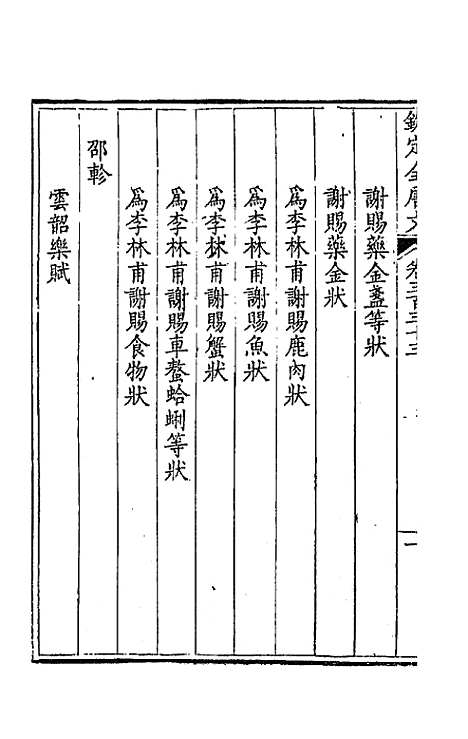 欽定全唐文
卷三百三十三
一
謝賜藥金盞等狀
謝賜藥金狀
為李林甫謝賜鹿肉狀
為李林甫謝賜魚狀
為李林甫謝賜蟹狀
為李林甫謝賜車螯蛤蜊等狀
為李林甫謝賜食物狀
邵軫
雲韶樂賦